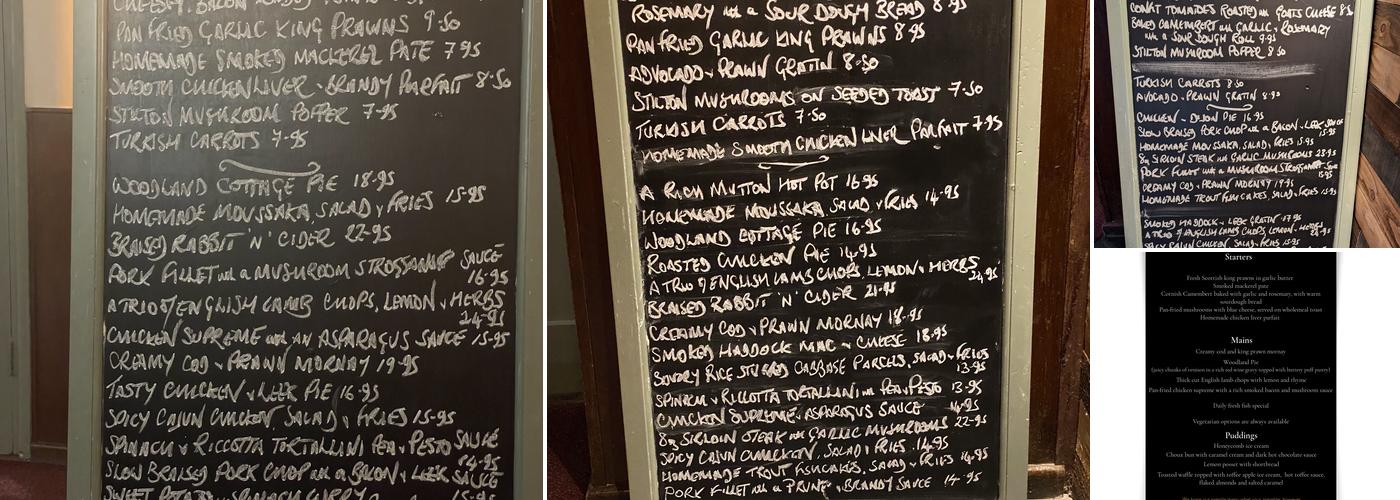 CHEESEY, BACON
PAN FRIED GARLIC KING PRAWNS 9.50
HOMEMADE SMOKED MACKEREL PATE 7.95
SMOOTH CHICKEN LIVER + BRANDY PARFAIT 8.50
STILTON MUSHROOM POPPER 7.95
TURKISH CARROTS 7.95
WOODLAND COTTAGE PIE 18.95
HOMEMADE MOUSSAKA, SALAD + FRIES 15.95
BRAISED RABBIT 'N' CIDER 22.95
PORK FILLET with a MUSHROOM STROGANOFF SAUCE
16.95
A TRIO of ENGLISH LAMB CHOPS, LEMON + HERBS
24.95
CHICKEN SUPREME with AN ASPARAGUS SAUCE 15.95
CREAMY COD + PRAWN MORNAY 19.95
TASTY CHICKEN + LEEK PIE 16.95
SPICY CAJUN CHICKEN, SALAD + FRIES 15.95
SPINACH + RICCOTTA TORTALLINI PEA + PESTO SAUCE
14.95
SLOW BRAISED PORK CHOP with a BACON + LEEK SAUCE
15.95
SWEET POTATO + SPINACH CURRY
ROSEMARY with a SOUR DOUGH BREAD 8.95
PAN FRIED GARLIC KING PRAWNS 8.95
ADVOCADO + PRAWN GRATIN 8.50
STILTON MUSHROOMS ON SEEDED TOAST 7.50
TURKISH CARROTS 7.50
HOMEMADE SMOOTH CHICKEN LIVER PARFAIT 7.95
A RICH MUTTON HOT POT 16.95
HOMEMADE MOUSSAKA, SALAD + FRIES 14.95
WOODLAND COTTAGE PIE 16.95
ROASTED CHICKEN PIE 14.95
A TRIO of ENGLISH LAMB CHOPS, LEMON + HERBS
24.95
BRAISED RABBIT 'N' CIDER 21.95
CREAMY COD + PRAWN MORNAY 18.95
SMOKED HADDOCK MAC + CHEESE 18.95
SAVORY RICE STUFFED CABBAGE PARCELS, SALAD + FRIES
13.95
SPINACH + RICCOTTA TORTALLINI with PEA + PESTO 13.95
CHICKEN SUPREME + ASPARAGUS SAUCE 14.95
8oz SIRLOIN STEAK with GARLIC MUSHROOMS 22.95
SPICY CAJUN CHICKEN, SALAD + FRIES 14.95
HOMEMADE TROUT FISHCAKES, SALAD + FRIES 14.95
PORK FILLET with a PRUNE + BRANDY SAUCE 14.95
CONFIT TOMATOES ROASTED with GOATS CHEESE 8.50
BAKED CAMEMBERT with GARLIC + ROSEMARY
with a SOUR DOUGH ROLL 9.95
STILTON MUSHROOM POPPER 8.50
TURKISH CARROTS 8.50
AVOCADO + PRAWN GRATIN 8.95
CHICKEN + DIJON PIE 16.95
SLOW BRAISED PORK CHOP with a BACON + LEEK SAUCE
15.95
HOMEMADE MOUSSAKA, SALAD + FRIES 15.95
8oz SIRLOIN STEAK with GARLIC MUSHROOMS 23.95
PORK FILLET with a MUSHROOM STROGANOFF SAUCE
CREAMY COD + PRAWN MORNAY 19.95
HOMEMADE TROUT FISHCAKES, SALAD + FRIES 15.95
SMOKED HADDOCK + LEEK GRATIN 17.95
A TRIO of ENGLISH LAMB CHOPS, LEMON + HERBS
SPICY CAJUN CHICKEN, SALAD + FRIES 15.95
Starters
Fresh Scottish king prawns in garlic butter
Smoked mackerel pate
Cornish Camembert baked with garlic and rosemary, with warm
sourdough bread
Pan-fried mushrooms with blue cheese, served on wholemeal toast
Homemade chicken liver parfait
Mains
Creamy cod and king prawn mornay
Woodland Pie
(juicy chunks of venison in a rich red wine gravy topped with buttery puff pastry)
Thick cut English lamb chops with lemon and thyme
Pan-fried chicken supreme with a rich smoked bacon and mushroom sauce
Daily fresh fish special
Vegetarian options are always available
Puddings
Honeycomb ice cream
Choux bun with caramel cream and dark hot chocolate sauce
Lemon posset with shortbread
Toasted waffle topped with toffee apple ice cream, hot toffee sauce,
flaked almonds and salted caramel